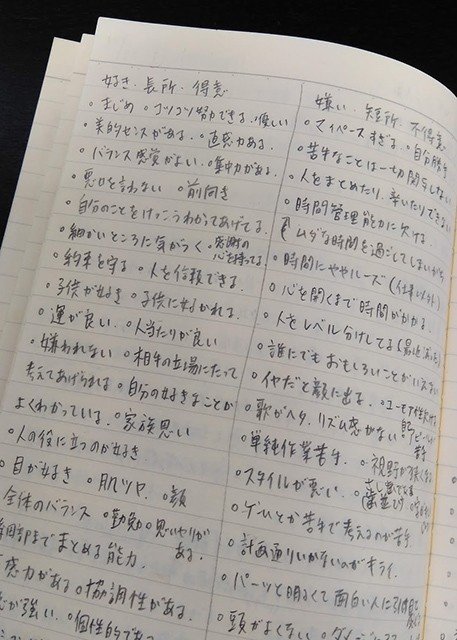 好き・長所・得意
○まじめ ○コツコツ努力できる・優しい
○美的センスがある。 ○直感力ある。
○バランス感覚がよい ○集中力がある。
○悪口を言わない ○前向き
○自分のことをけっこうわかってあげてる。
○細かいところに気がつく ○感謝の心を持ってる
○約束を守る ○人を信頼できる。
○子供が好き ○子供に好かれる。
○運が良い ○人当たりが良い
○嫌われない ○相手の立場にたって
考えてあげられる ○自分の好きなことが
よくわかっている。 ○家族思い
○人の役に立つのが好き
○目が好き ○肌ツヤ ○顔
全体のバランス ○勤勉 ○思いやりがある。
までまとめる能力。
感力がある ○協調性がある。
が強い。 ○個性的であ
嫌い・短所・不得意
○マイペースすぎる ○自分勝手
○苦手なことは一切関与しない
○人をまとめたり、導いたりできない
○時間管理能力に欠ける
ムダな時間を過ごしてしまいがち
○時間にややルーズ(仕事以外)
○心を開くまで時間がかかる
○人をレベル分けしてる
○誰にでもおもしろいことがいえない
○イヤだと顔に出る ○ユーモア
○歌がヘタ、リズム感がない
○単純作業苦手 ○視野が狭くなる
○スタイルが悪い
○ゲームとか苦手で考えるのが苦手
○計画通りいかないのがキライ
○パーッと明るくて面白い人に
○頭がよくない